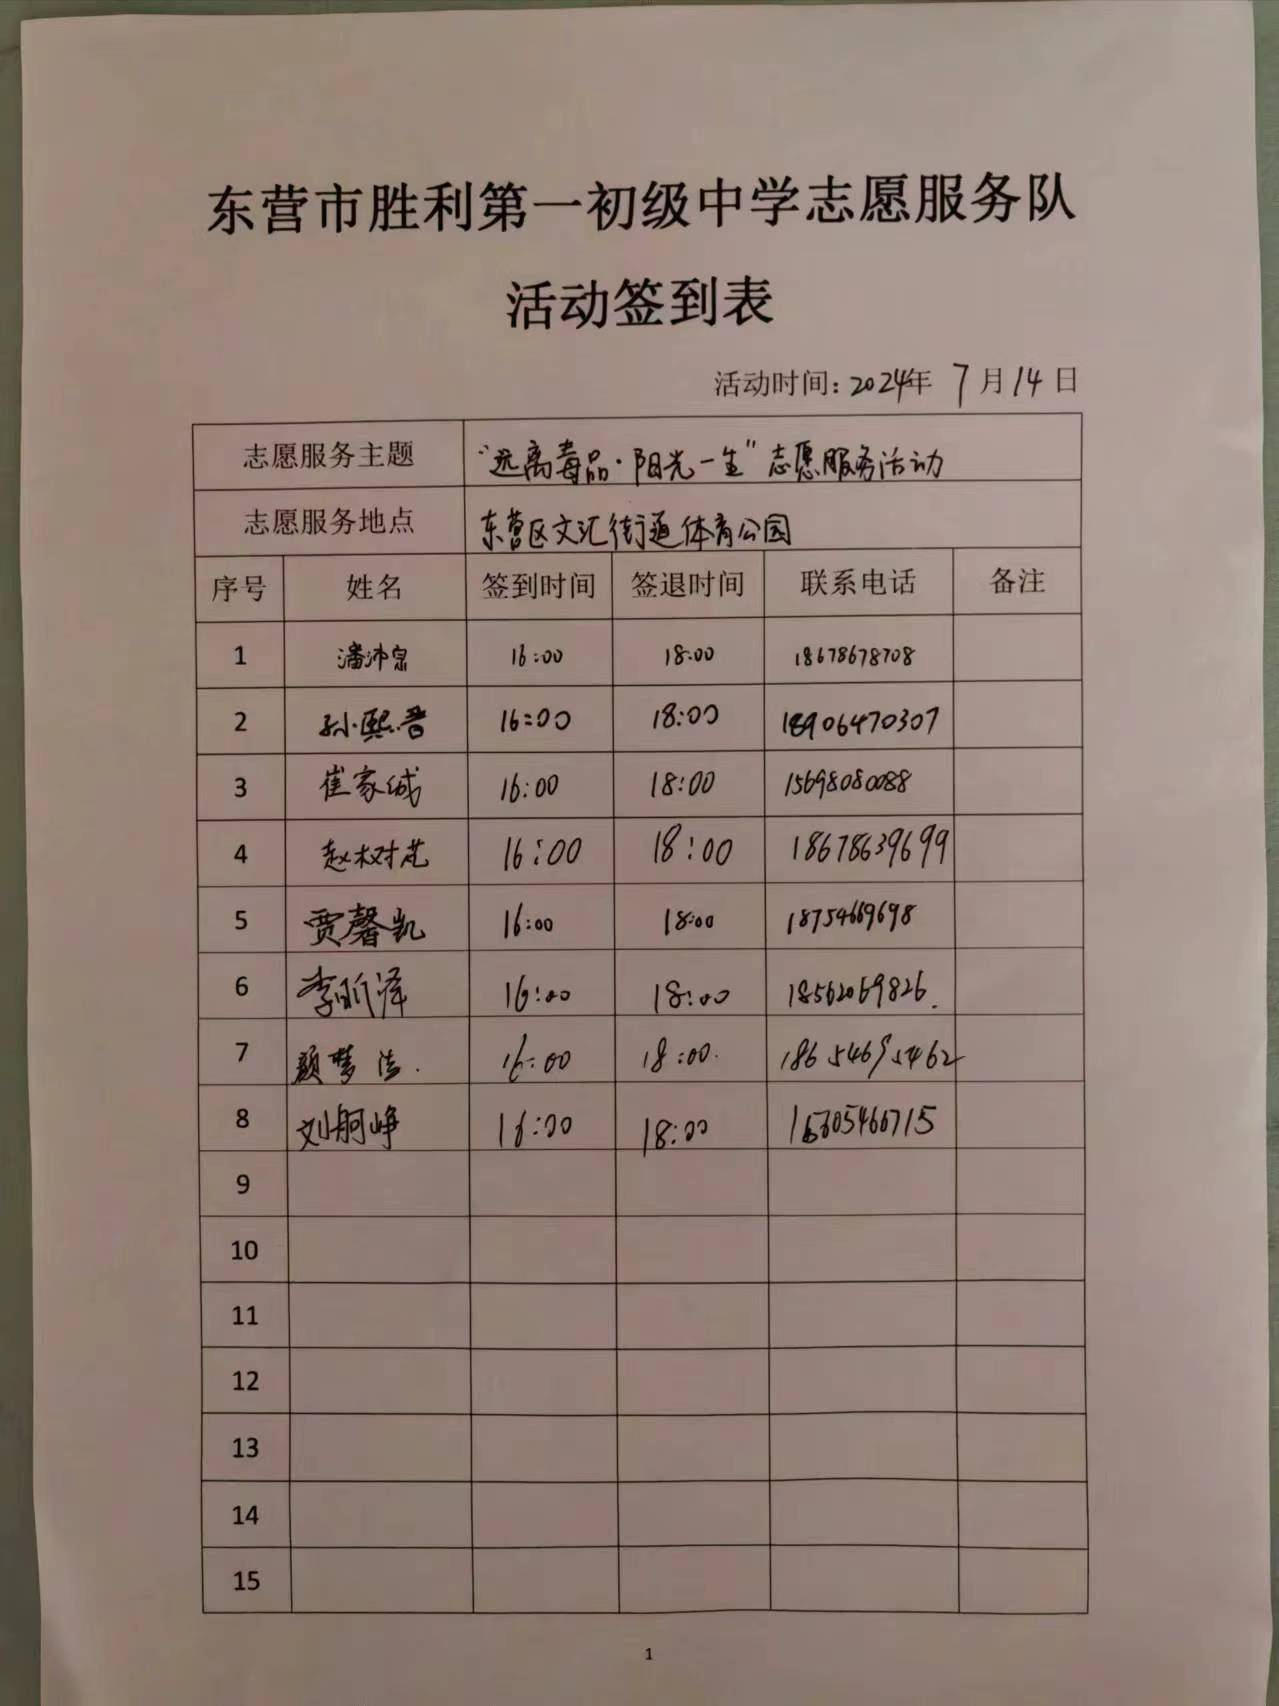 东营市胜利第一初级中学志愿服务队
活动签到表
活动时间：2024年 7月14日
志愿服务主题 “远离毒品·阳光一生”志愿服务活动
志愿服务地点 东营区文汇街道体育公园
序号 姓名 签到时间 签退时间 联系电话 备注
1 潘沛泉 16:00 18:00 18678678708
2 孙熙晋 16:00 18:00 18906470307
3 崔家诚 16:00 18:00 15698080088
4 赵树芃 16:00 18:00 18678639699
5 贾馨凯 16:00 18:00 18754669698
6 李昕泽 16:00 18:00 18562069826.
7 颜梦洁. 16:00 18:00.
8 刘舸峥 16:00 18:00
9
10
11
12
13
14
15
1